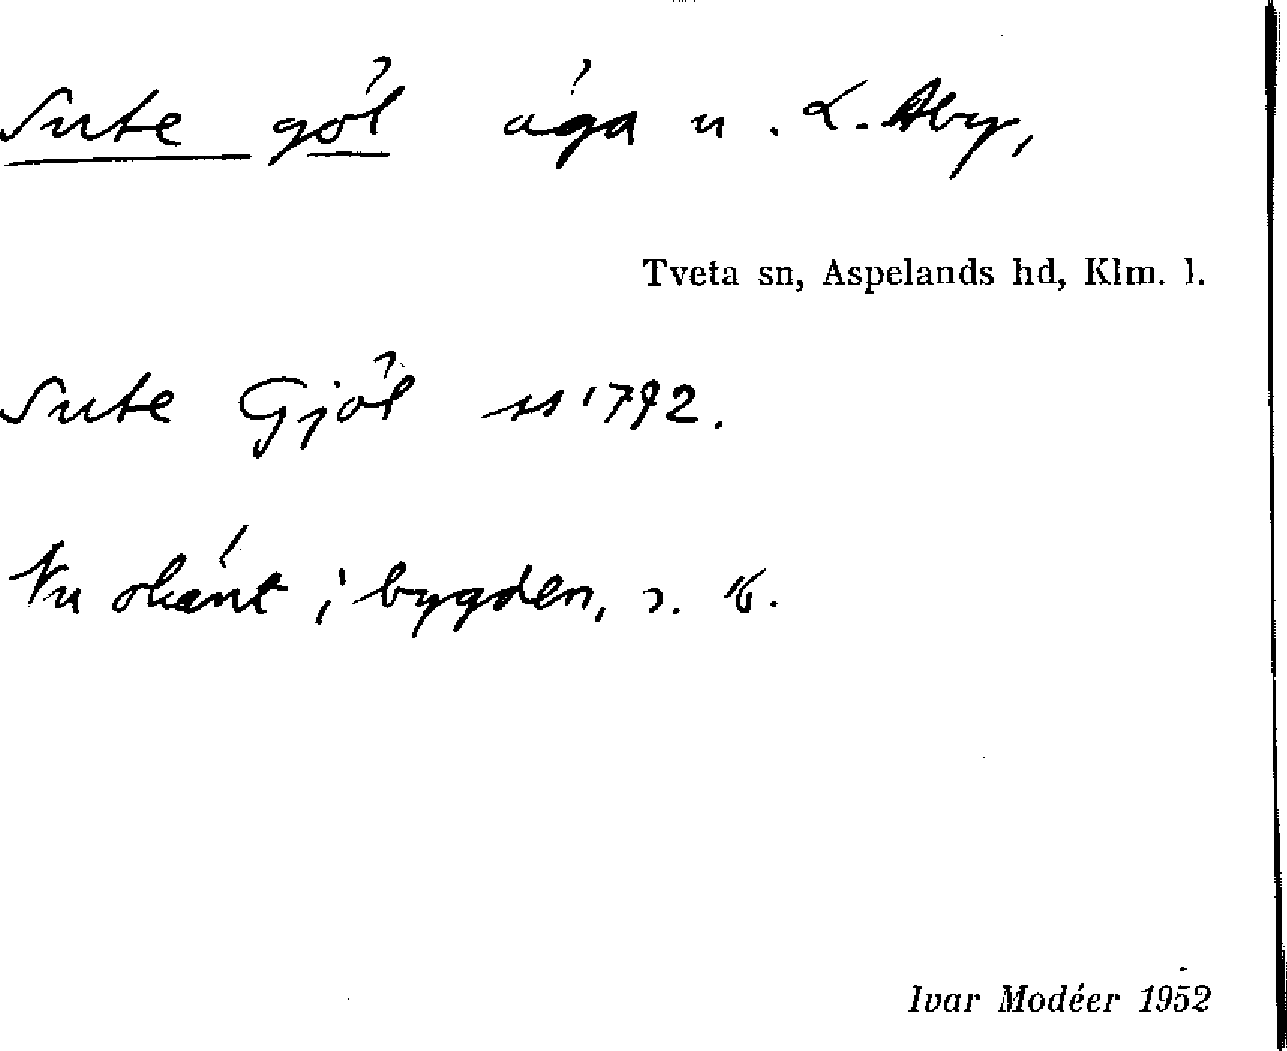 Sute göl äga u. L. Åby,
Tveta sn, Aspelands hd, Klm. l.
Sute Gjöl ss 1792.
Nu okänt i bygden,
Ivar Modéer 1952